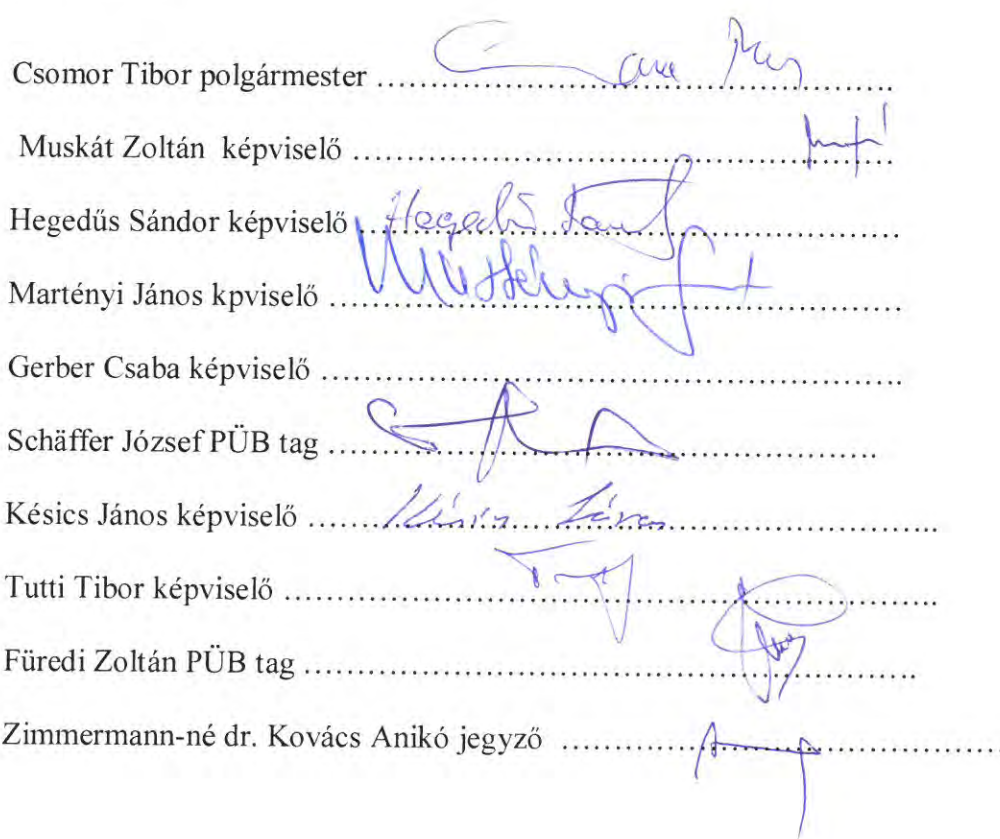 Csomor Tibor polgármester ........................................
Muskát Zoltán képviselő ........................................
Hegedűs Sándor képviselő ........................................ Hegedűs Sándor
Martényi János kpviselő ........................................
Gerber Csaba képviselő ........................................
Schäffer József PÜB tag ........................................
Késics János képviselő ........................................ Késics János
Tutti Tibor képviselő ........................................
Füredi Zoltán PÜB tag ........................................
Zimmermann-né dr. Kovács Anikó jegyző ........................................